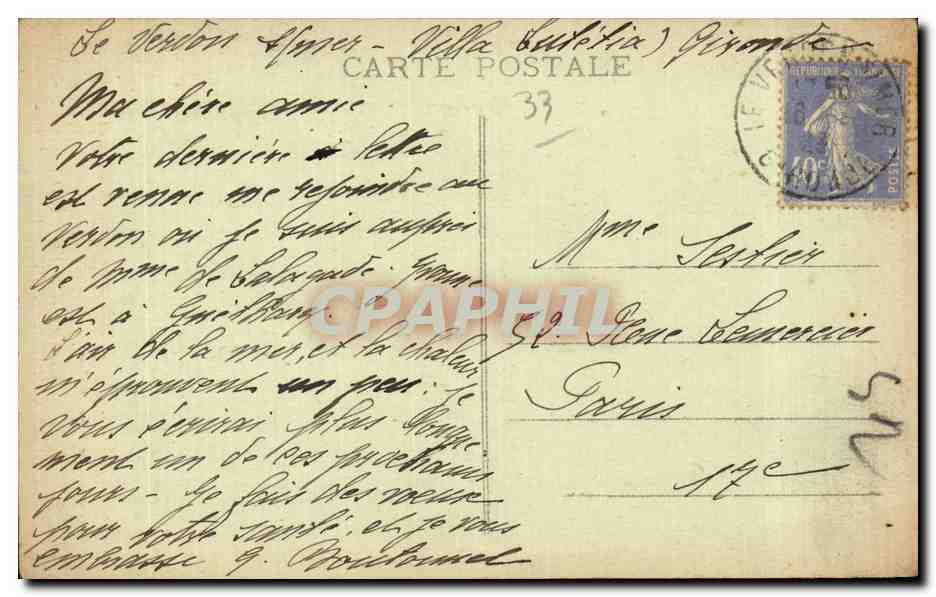 Le Verdon s/mer - Villa Lutétia) Gironde
CARTE POSTALE
33
Ma chère amie
Votre dernière lettre
est venue me rejoindre au
Verdon où je suis auprès
de Mme de
est à Guéthary.
L'air de la mer, et la chaleur
m'éprouvent un peu. Je
vous écrirai plus longue
ment un de ces prochains
jours - Je fais des voeux
pour votre santé, et je vous
embrasse
REPUBLIQUE FRANCAISE
40c
POSTES
LE VERDON
Mme Sestier
52. Rue Lemercier
Paris
17e
CPAPHIL